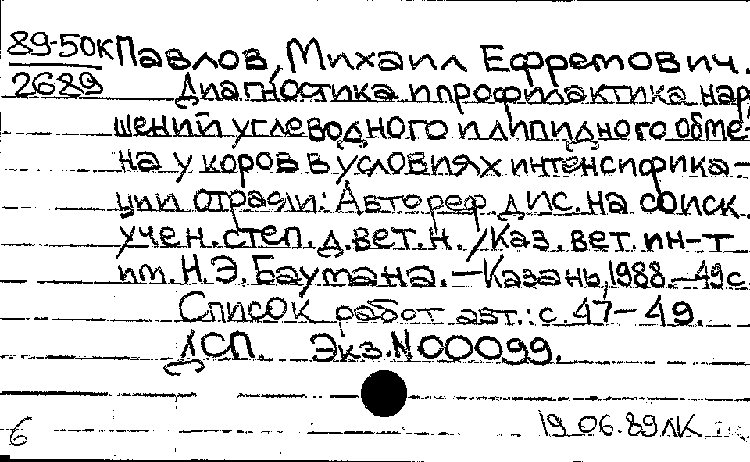 89-50к Павлов, Михаил Ефремович.
2689 Диагностика и профилактика нару
шений углеводного и липидного обме-
на у коров в условиях интенсифика-
ции отрасли: Автореф. дис. на соиск.
учен. степ. д. вет. н. /Каз. вет. ин-т
им. Н. Э. Баумана. – Казань, 1988. – 49 с.
Список работ авт.: с. 47 – 49.
ДСП. Экз. N 00099.
6 19.06.89 ЛК